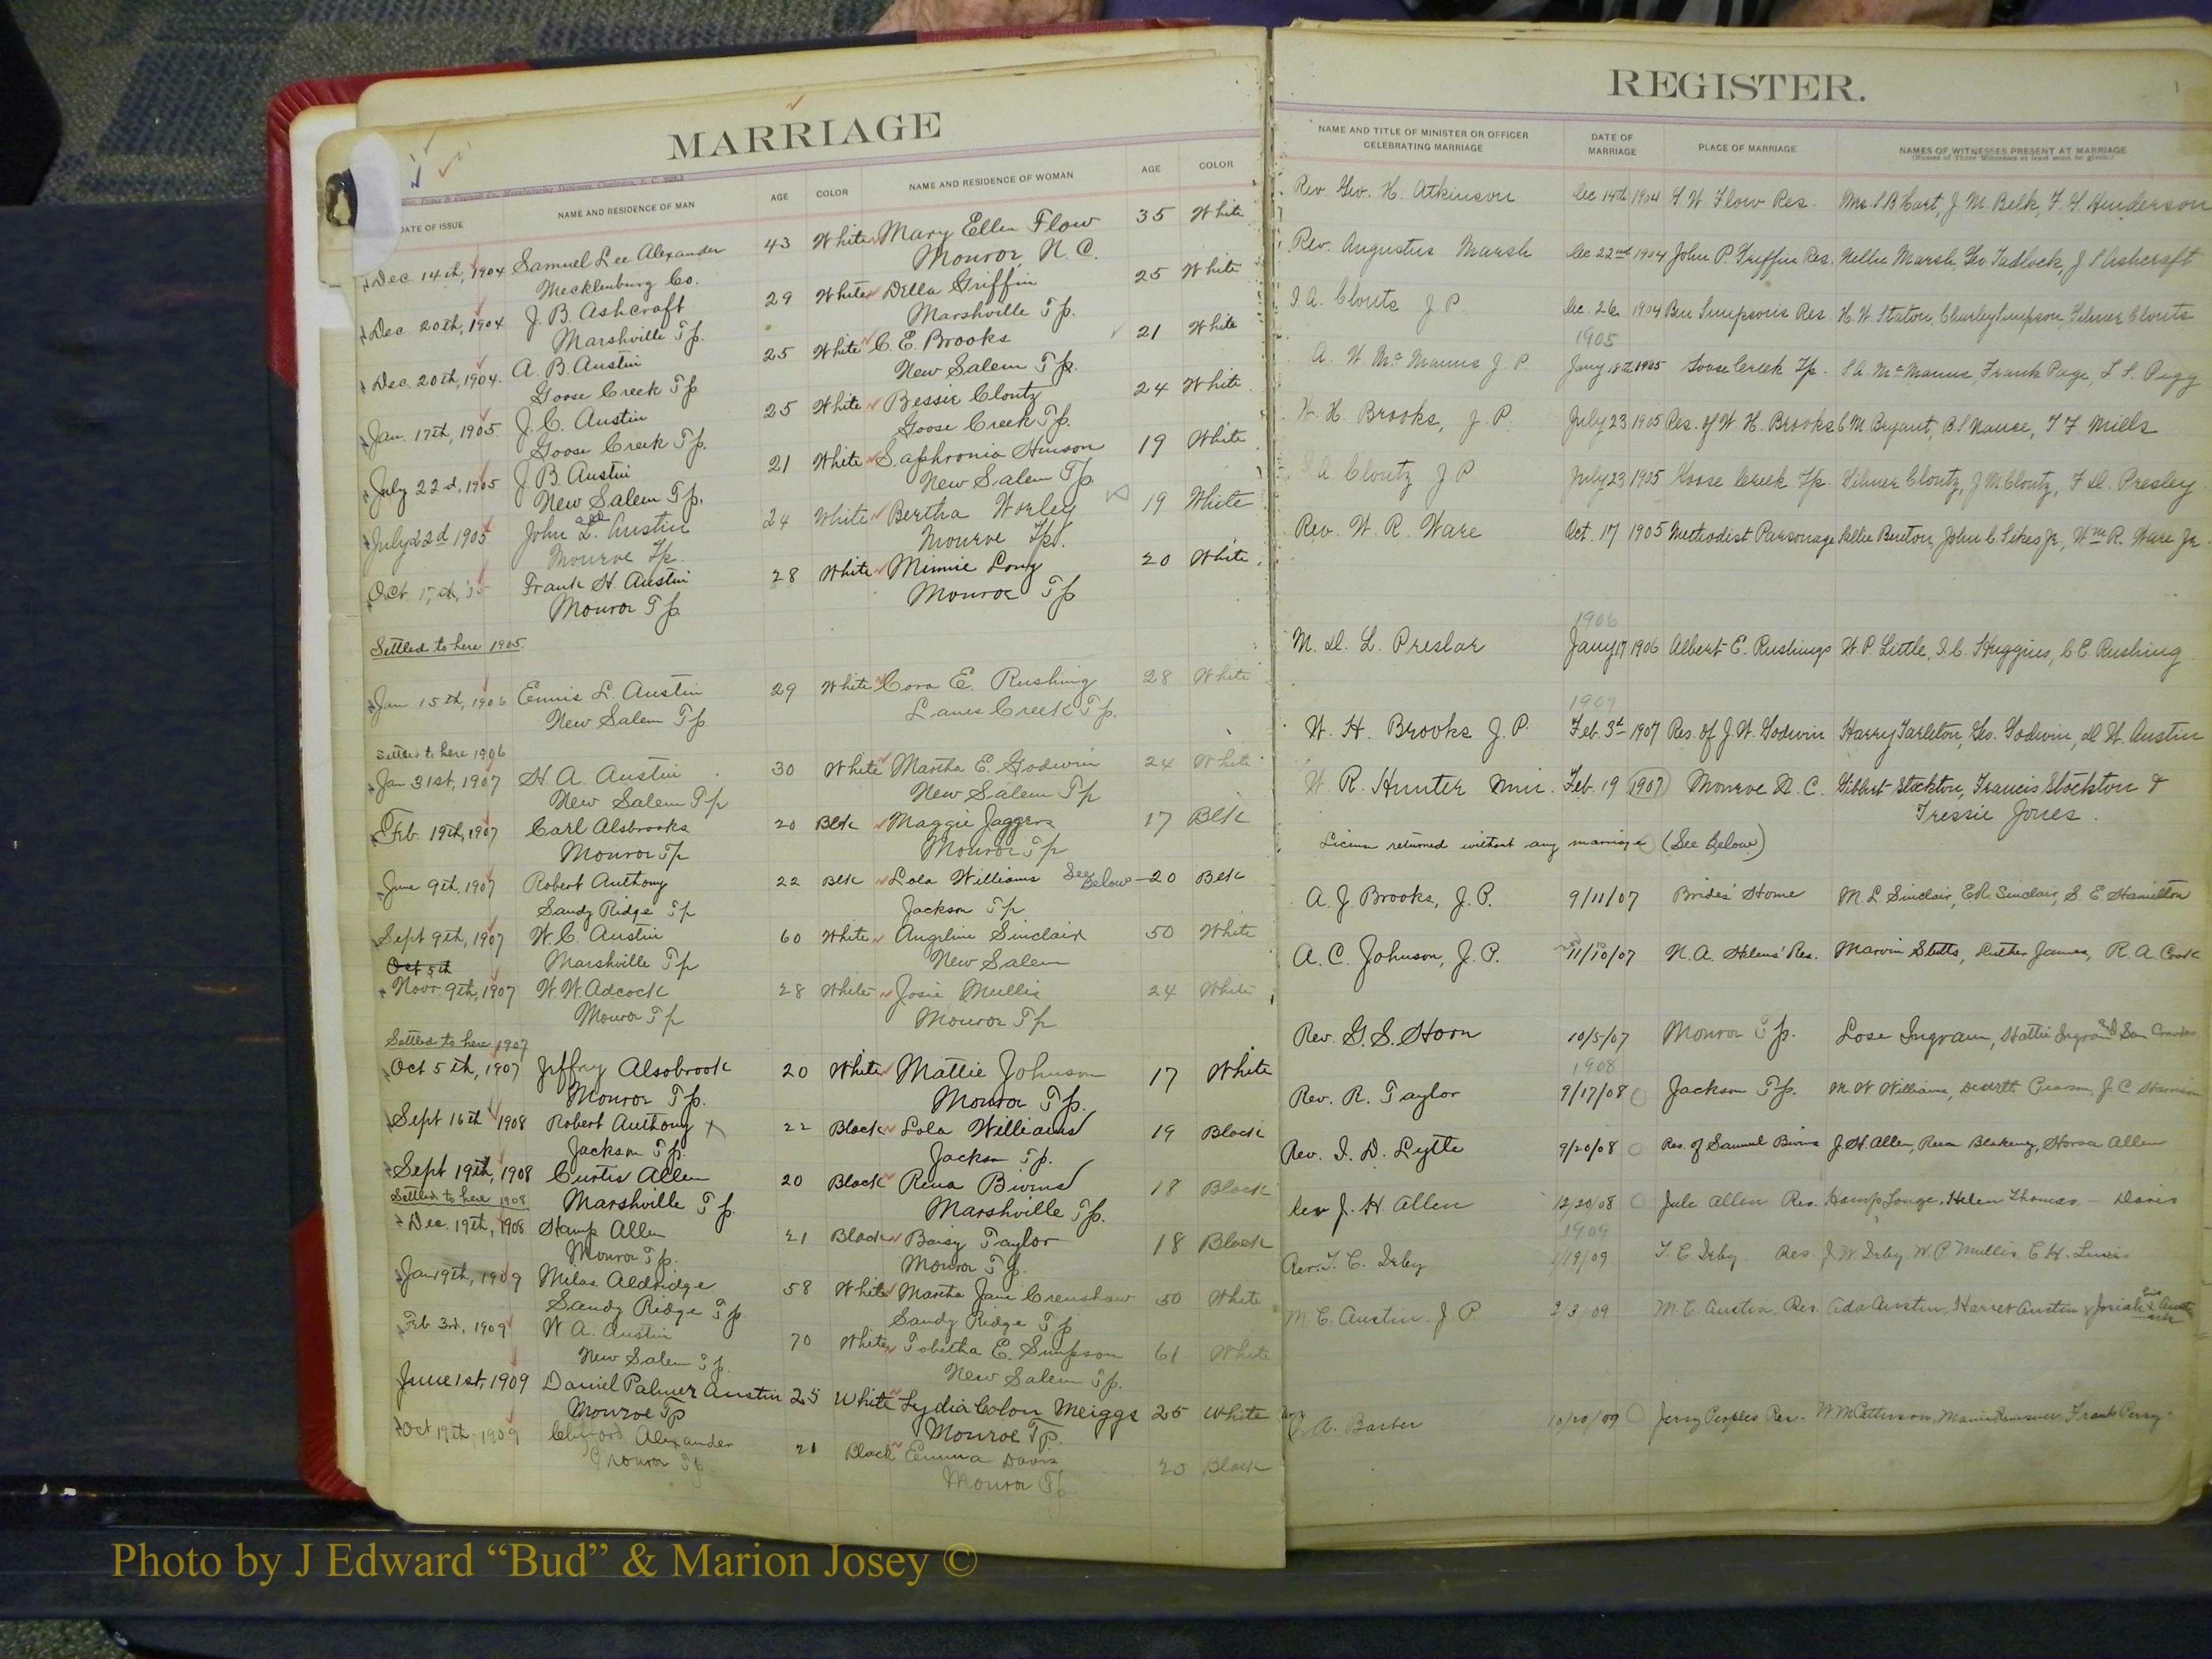 MARRIAGE
DATE OF ISSUE NAME AND RESIDENCE OF MAN AGE COLOR NAME AND RESIDENCE OF WOMAN AGE COLOR
Dec 14th, 1904 Samuel Lee Alexander 43 White Mary Ellen Flow 35 White
Mecklenburg Co. Monroe N.C.
Dec. 20th, 1904 J. B. Ashcraft 29 White Della Griffin 25 White
Marshville Tp. Marshville Tp.
Dec. 20th, 1904. A. B. Austin 25 White C. E. Brooks 21 White
Goose Creek Tp New Salem Tp.
Jan. 17th, 1905. J. C. Austin 25 White Bessie Clontz 24 White
Goose Creek Tp. Goose Creek Tp.
July 22d, 1905 J. B. Austin 21 White Saphronia Hinson 19 White
New Salem Tp. New Salem Tp.
July 22d 1905 John L. Austin 24 White Bertha Worley 19 White
Monroe Tp. Monroe Tp.
Oct. 17th, Frank H. Austin 28 White Minnie Long 20 White
Monroe Tp. Monroe Tp
Settled to here 1905.
Jan 15th, 1906 Ennis L. Austin 29 White Cora E. Rushing 28 White
New Salem Tp. Lanes Creek Tp.
Settled to here 1906
Jan 31st, 1907 H. A. Austin 30 White Martha E. Godwin 24 White
New Salem Tp New Salem Tp
Feb 19th, 1907 Carl Alsbrooks 20 Blk Maggie Jaggers 17 Blk
Monroe Tp Monroe Tp
June 9th, 1907 Robert Anthony 22 Blk Lola Williams See Below 20 Blk
Sandy Ridge Tp Jackson Tp
Sept 9th, 1907 W. C. Austin 60 White Angeline Sinclair 50 White
Oct 5th Marshville Tp New Salem
Novr. 9th, 1907 W. W. Adcock 28 White Josie Mullis 24 White
Monroe Tp Monroe Tp
Settled to here 1907
Oct 5th, 1907 Jeffry Alsobrook 20 White Mattie Johnson 17 White
Monroe Tp. Monroe Tp.
Sept 16th 1908 Robert Anthony X 22 Black Lola Williams 19 Black
Jackson Tp. Jackson Tp.
Sept 19th, 1908 Curtis Allen 20 Black Rena Bivins 18 Black
Settled to here 1908 Marshville Tp. Marshville Tp.
Dec. 19th, 1908 Hamp Allen 21 Black Daisy Taylor 18 Black
Monroe Tp. Monroe Tp.
Jan 9th, 1909 Milas Aldridge 58 White Martha Jane Crenshaw 50 White
Sandy Ridge Tp. Sandy Ridge Tp
Feb 3rd, 1909 W. A. Austin 70 White Tobitha E. Simpson 61 White
New Salem Tp. New Salem Tp.
June 1st, 1909 Daniel Palmer Austin 25 White Lydia Colon Meiggs 25 White
Monroe Tp Monroe Tp.
Oct 19th, 1909 Alexander 21 Black Emma Davis 20 Black
Monroe Tp. Monroe Tp.
REGISTER.
NAME AND TITLE OF MINISTER OR OFFICER CELEBRATING MARRIAGE DATE OF MARRIAGE PLACE OF MARRIAGE NAMES OF WITNESSES PRESENT AT MARRIAGE
(Names of Three Witnesses at least must be given.)
Rev. Geo. H. Atkinson Dec 14th 1904 Flow Res. Mrs. S B Hart, J. M. Belk, Henderson
Rev. Augustus Marsh Dec. 22nd 1904 John P. Griffin Res. Nellie Marsh, Geo Tadlock, J S Ashcraft
I. A. Clontz J P. Dec. 26 1904 Ben Simpson's Res. H. W. Staton, Churley Simpson, Clontz
1905
A. W. McManus J. P. Jany 18th 1905 Goose Creek Tp. S. A. McManus, Frank Page, Pigg
W. H. Brooks, J. P. July 23 1905 Res. of W. H. Brooks C. M. Bryant, B. S. Nance, T. F. Mills
I. A. Clontz J P July 23 1905 Goose Creek Tp. Clontz, J. M. Clontz, Presley
Rev. W. R. Ware Oct. 17 1905 Methodist Parsonage Sallie Benton, John C. Sikes Jr., Wm R. Ware Jr.
1906
M. D. L. Preslar Jany 17 1906 Albert E. Rushings W. P. Little, Huggins, C. E. Rushing
W. H. Brooks J. P. Feb. 3d 1907 Res. of J. W. Godwin Harry Tarleton, Geo. Godwin, Austin
W. R. Hunter Min. Feb. 19 1907 Monroe N. C. Stockton, Francis Stockton &
Tressie Jones.
License returned without any marriage (See Below)
A. J. Brooks, J. P. 9/11/07 Brides' Home M. L. Sinclair, Sinclair, S. E. Hamilton
A. C. Johnson, J. P. 11/10/07 N. A. Helms' Res. Marvin Stitts, Luther James, R. A. Cook
Rev. G. S. Horn 10/5/07 Monroe Tp. Lose Ingram, Hattie Ingram
1908
Rev. R. Taylor 9/17/08 Jackson Tp. M. W. Williams,
Rev. I. D. Lytte 9/20/08 Res. of Samuel Bivins J. H. Allen, Rena Blakeney, Allen
Rev J. H. Allen 12/20/08 Jule Allen Res. Helen Thomas Davis
1909
Rev. T. C. 1/19/09 Res. W. P. Mullis,
M. C. Austin. J P 2/3/09 M. C. Austin, Res. Ada Austin, Austin
A. Barber 10/20/09 Jerry Peoples Res. Frank Perry
Photo by J Edward “Bud” & Marion Josey ©